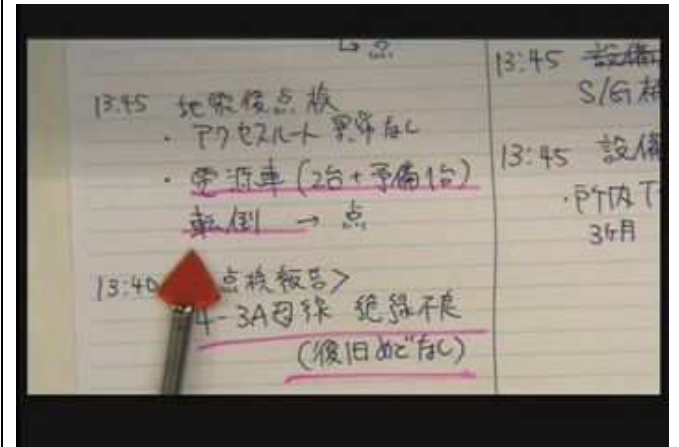 13:45 地震後点検
・アクセスルート 異常なし
・電源車(2台+予備1台)
転倒 → 点
13:40 点検報告>
4-3A母線 絶縁不良
(復旧めどなし)
13:45 設備
S/G
13:45 設備
・所内T
3ヶ月